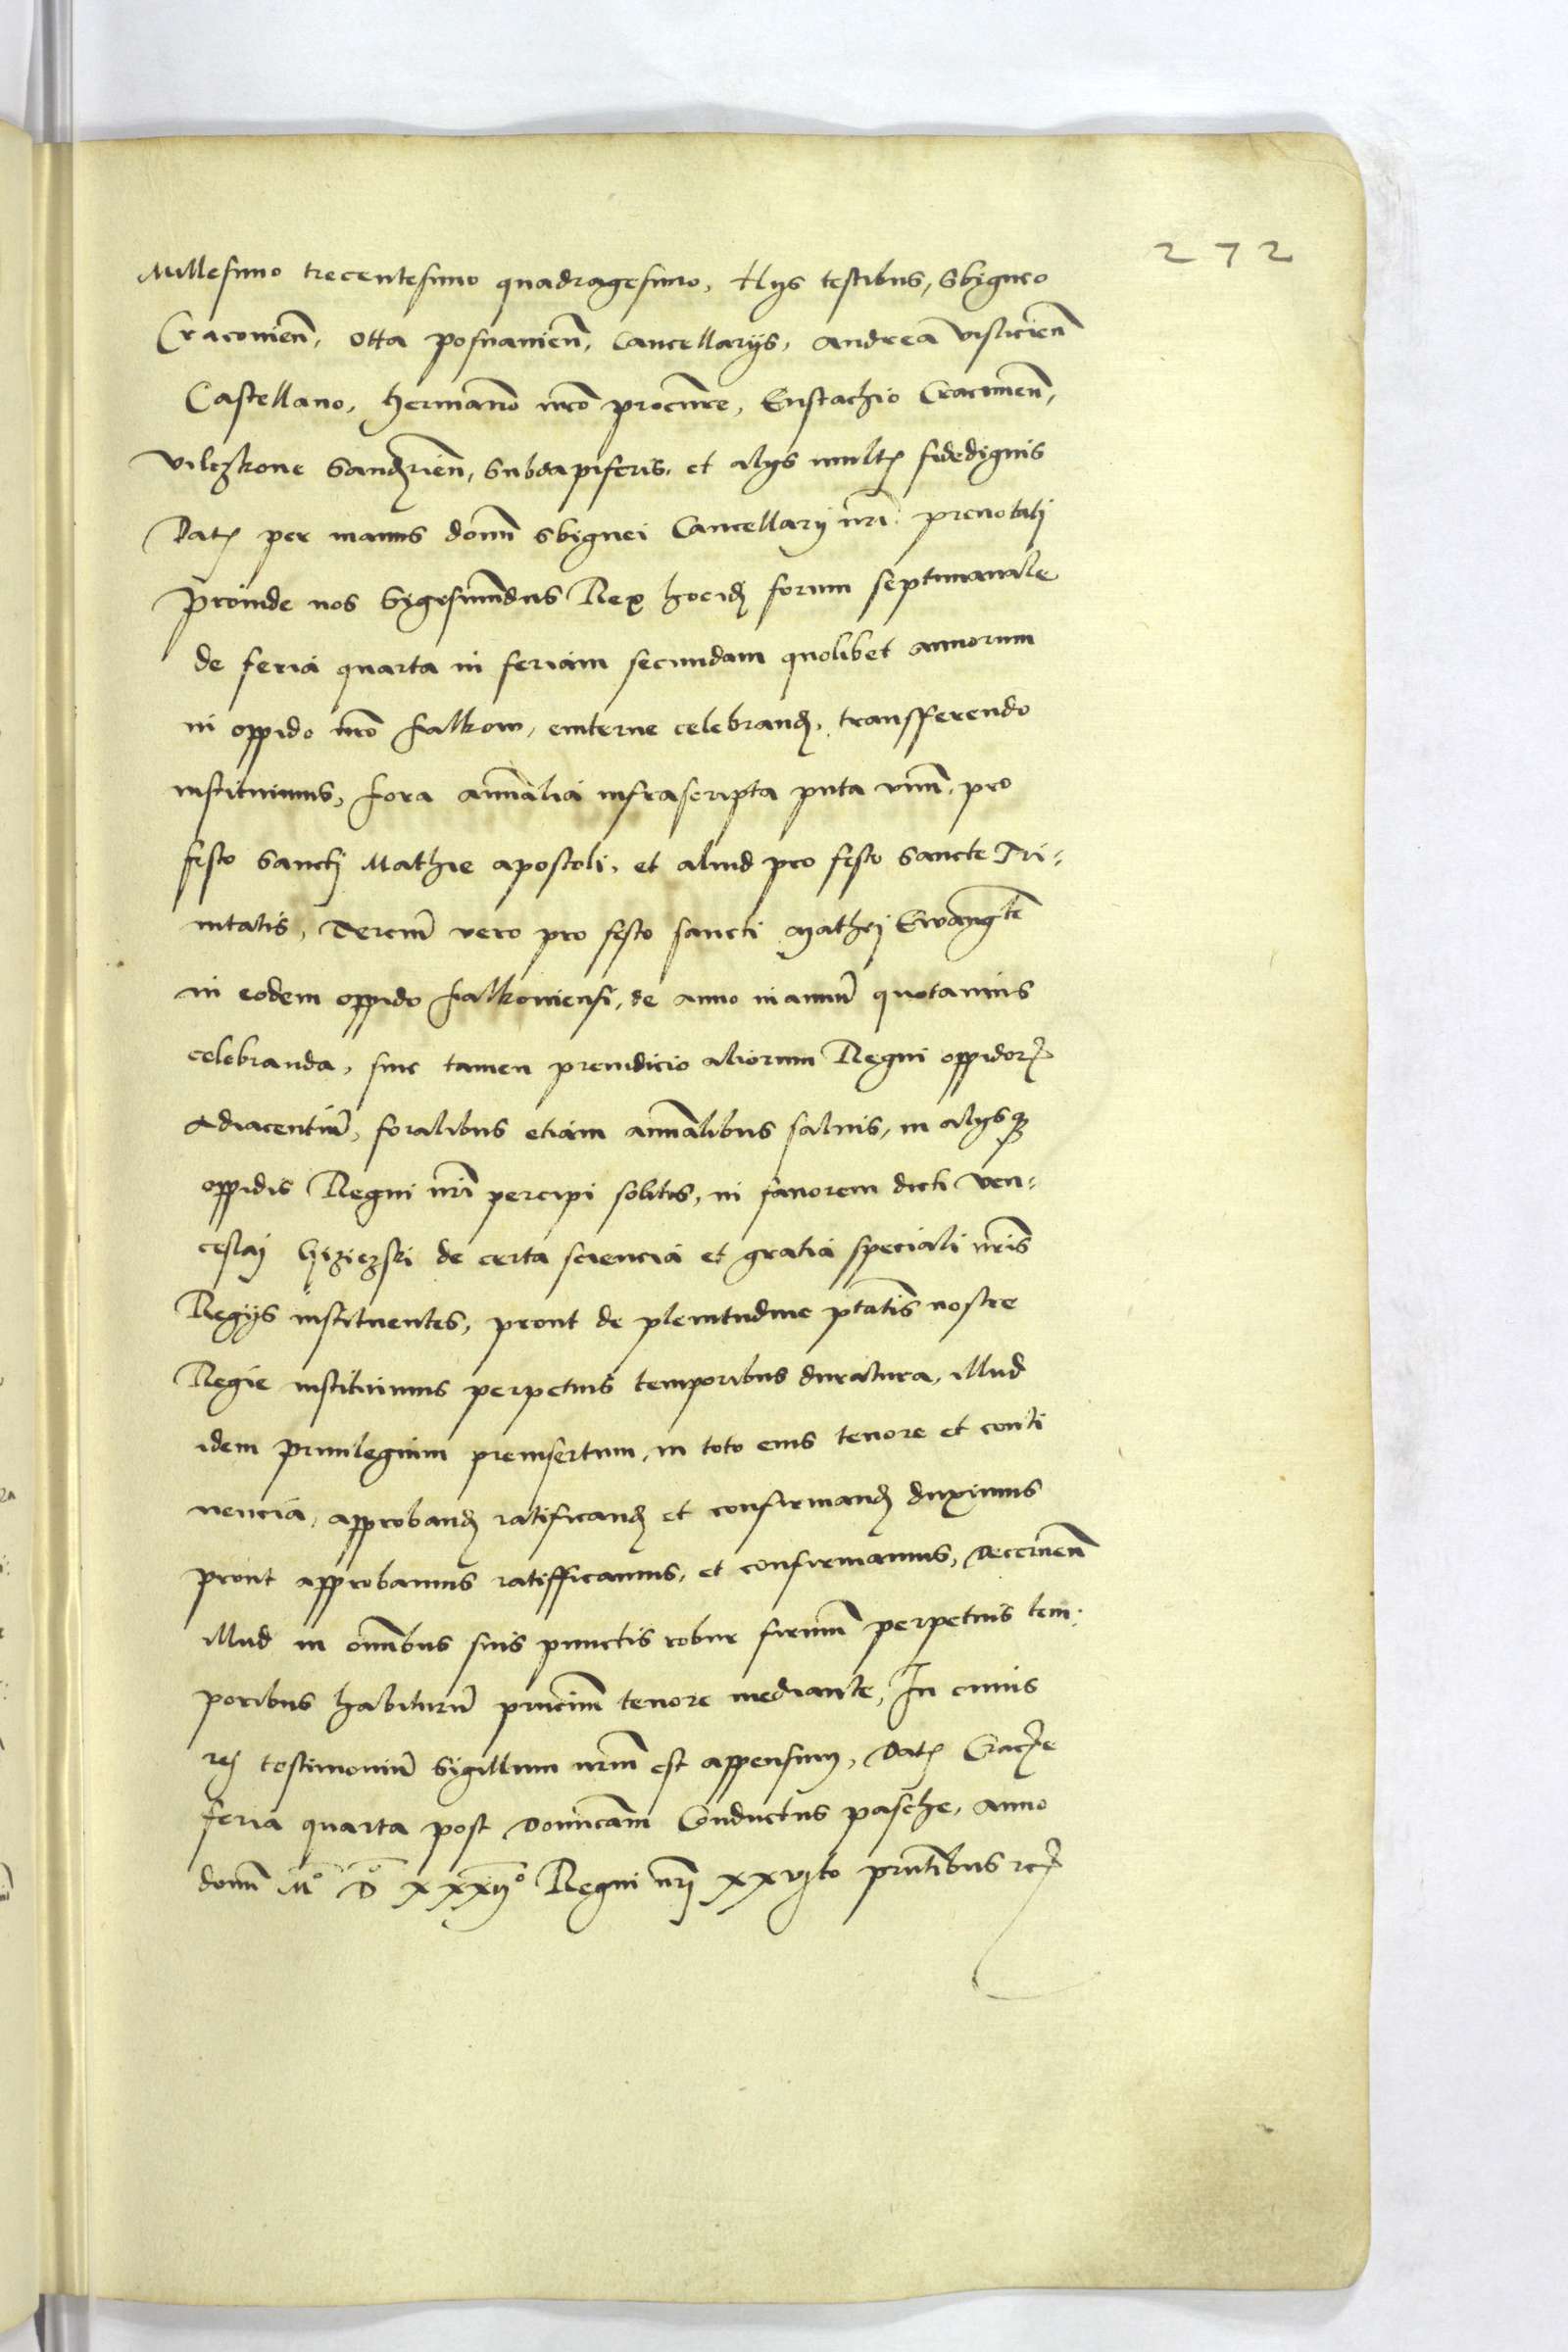 272
Millesimo trecentesimo quadragesimo, Hijs testibus, Sbigneo
Cracovien̄, Otta posnanien̄, Cancellarijs, Andrea Visticien̄
Castellano, hermano nr̄o procur̄e, Eustachio Cracovien̄,
Vilczkone Sandz̄ien̄, Subdapiferis, et alijs mult(is) fidedignis
Dat(um) per manus domī Sbignei Cancellarij nr̄i prenotatj
Proinde nos Sigesmūdus Rex hocidem forum septimanale
de feria quarta in feriam secundam quolibet annorum
in oppido nr̄o falkow, eviterne celebrand(um), transfferendo
instituimus, fora annalia infrascripta puta vnū pro
festo Sanctj Mathie apostoli, et aliud pro festo Sancte Tri-
nitatis, Terciū vero pro festo sancti Mathej Evangte
in eodem oppido falkoviensi, de anno in annū quotannis
celebranda, sine tamen preiudicio aliorum Regni oppidor(um)
Adiacentiū, foralibus etiam annalibus salvis, in alijsq(ue)
oppidis Regni nr̄i percipi solitis, in favorem dicti Ven-
ceslaj Gyziczski de certa sciencia et gratia speciali nr̄is
Regijs instituentes, prout de plenitudine ptātis nostre
Regie instituimus perpetuis temporibus duratura, illud
idem privilegium preinsertum, in toto eius tenore et conti
nencia, approband(um) ratificand(um) et confirmand(um) duximus
prout approbamus ratifficamus, et confirmamus, Decernen̄
illud in om̄ibus suis punctis robur firmū perpetuis tem-
poribus habiturū pn̄ciūm tenore mediante, In cuius
rej testimoniū Sigillum nr̄m est appensum, Dat(um) Crac(ovi)e
feria quarta post dominicam Conductus pasche, Anno
domī Mº Dº XXXIIº Regni nr̄j XXVIto pn̄tibus rc(um)